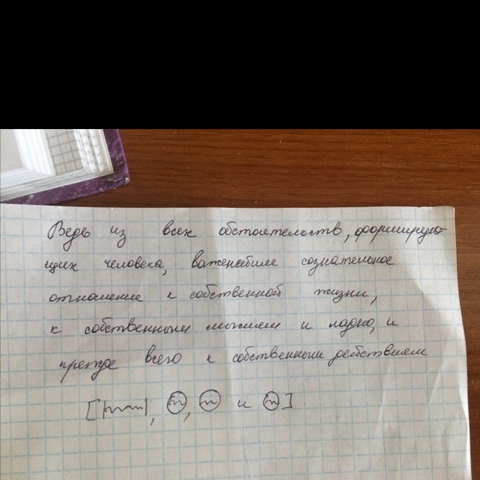 Ведь из всех обстоятельств, формирую-
щих человека, важнейшие сознательное
отношение к собственной жизни,
к собственным мыслям и ладно, и
прежде всего к собственным действиям
[ , , и ]